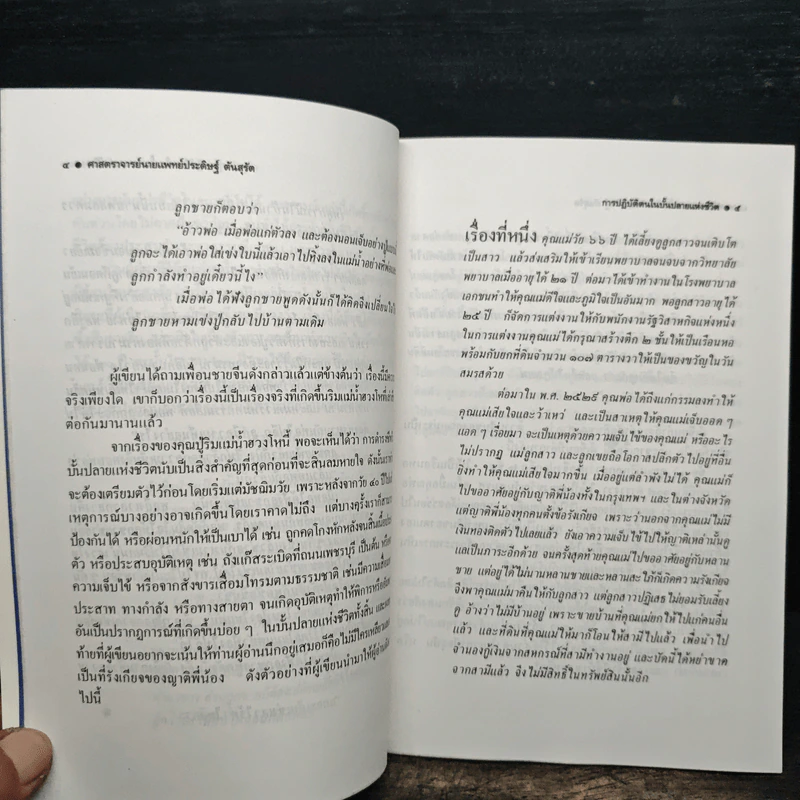 ๔ ● ศาสตราจารย์นายแพทย์ประดิษฐ์ ตันสุรัต
ลูกชายก็ตอบว่า
"อ้าวพ่อ เมื่อพ่อแก่ตัวลง และต้องนอนเจ็บอย่างปู่
ลูกจะได้เอาพ่อใส่เข่งใบนี้แล้วเอาไปทิ้งลงในแม่น้ำอย่างที่พ่อ
ลูกกำลังทำอยู่เดี๋ยวนี้ไง"
เมื่อพ่อได้ฟังลูกชายพูดดังนั้นก็ได้คิดจึงเปลี่ยนใจ
ลูกชายหามเข่งปู่กลับไปบ้านตามเดิม
ผู้เขียนได้ถามเพื่อนชายจีนดังกล่าวแล้วแต่ข้างต้นว่า เรื่องนี้มี
จริงเพียงใด เขาก็บอกว่าเรื่องนี้เป็นเรื่องจริงที่เกิดขึ้นริมแม่น้ำฮวงโหที่
ต่อกันมานานแล้ว
จากเรื่องของคุณปู่ริมแม่น้ำฮวงโหนี้ พอจะเห็นได้ว่า การดำรงชีพ
บั้นปลายแห่งชีวิตนับเป็นสิ่งสำคัญที่สุดก่อนที่จะสิ้นลมหายใจ ดังนั้น
จะต้องเตรียมตัวไว้ก่อนโดยเริ่มแต่มัชฌิมวัย เพราะหลังจากวัย ๔๐ ปีไป
เหตุการณ์บางอย่างอาจเกิดขึ้นโดยเราคาดไม่ถึง แต่บางครั้งเราก็สามารถ
ป้องกันได้ หรือผ่อนหนักให้เป็นเบาได้ เช่น ถูกคดโกงหักหลังจนสิ้นเนื้อประดา
ตัว หรือประสบอุบัติเหตุ เช่น ถังแก๊สระเบิดที่ถนนเพชรบุรี เป็นต้น หรือ
ความเจ็บไข้ หรือจากสังขารเสื่อมโทรมตามธรรมชาติ เช่นมีความเสื่อม
ประสาท ทางกำลัง หรือทางสายตา จนเกิดอุบัติเหตุทำให้พิการหรือ
อันเป็นปรากฏการณ์ที่เกิดขึ้นบ่อย ๆ ในบั้นปลายแห่งชีวิตทั้งสิ้น และ
ท้ายที่ผู้เขียนอยากจะเน้นให้ท่านผู้อ่านนึกอยู่เสมอก็คือไม่มีใครเหลียวแล
เป็นที่รังเกียจของญาติพี่น้อง ดังตัวอย่างที่ผู้เขียนนำมาให้ผู้อ่าน
ไปนี้
การปฏิบัติตนในบั้นปลายแห่งชีวิต ● ๕
เรื่องที่หนึ่ง คุณแม่วัย ๖๖ ปี ได้เลี้ยงดูลูกสาวจนเติบโต
เป็นสาว แล้วส่งเสริมให้เข้าเรียนพยาบาลจนจบจากวิทยาลัย
พยาบาลเมื่ออายุได้ ๒๑ ปี ต่อมาได้เข้าทำงานในโรงพยาบาล
เอกชนทำให้คุณแม่ดีใจและภูมิใจเป็นอันมาก พอลูกสาวอายุได้
๒๕ ปี ก็จัดการแต่งงานให้กับพนักงานรัฐวิสาหกิจแห่งหนึ่ง
ในการแต่งงานคุณแม่ได้กรุณาสร้างตึก ๒ ชั้นให้เป็นเรือนหอ
พร้อมกับยกที่ดินจำนวน ๑๐๗ ตารางวาให้เป็นของขวัญในวัน
สมรสด้วย
ต่อมาใน พ.ศ. ๒๕๒๙ คุณพ่อได้ถึงแก่กรรมลงทำให้
คุณแม่เสียใจและว้าเหว่ และเป็นสาเหตุให้คุณแม่เจ็บออด ๆ
แอด ๆ เรื่อยมา จะเป็นเหตุด้วยความเจ็บไข้ของคุณแม่ หรืออะไร
ไม่ปรากฏ แม่ลูกสาว และลูกเขยถือโอกาสปลีกตัวไปอยู่ที่อื่น
ยิ่งทำให้คุณแม่เสียใจมากขึ้น เมื่ออยู่แต่ลำพังไม่ได้ คุณแม่ก็
ไปขออาศัยอยู่กับญาติพี่น้องทั้งในกรุงเทพฯ และในต่างจังหวัด
แต่ญาติพี่น้องทุกคนตั้งข้อรังเกียจ เพราะว่านอกจากคุณแม่ไม่มี
เงินทองติดตัวไปเลยแล้ว ยังเอาความเจ็บไข้ไปให้ญาติเหล่านั้นดู
แลเป็นภาระอีกด้วย จนครั้งสุดท้ายคุณแม่ไปขออาศัยอยู่กับหลาน
ชาย แต่อยู่ได้ไม่นานหลานชายและหลานสะใภ้ก็เกิดความรังเกียจ
จึงพาคุณแม่มาคืนให้กับลูกสาว แต่ลูกสาวปฏิเสธไม่ยอมรับเลี้ยง
ดู อ้างว่าไม่มีบ้านอยู่ เพราะขายบ้านที่คุณแม่ยกให้ไปให้แก่คนอื่น
แล้ว และที่ดินที่คุณแม่ให้มาก็โอนให้สามีไปแล้ว เพื่อนำไป
จำนองกู้เงินจากสหกรณ์ที่สามีทำงานอยู่ และบัดนี้ได้หย่าขาด
จากสามีแล้ว จึงไม่มีสิทธิ์ในทรัพย์สินนั้นอีก